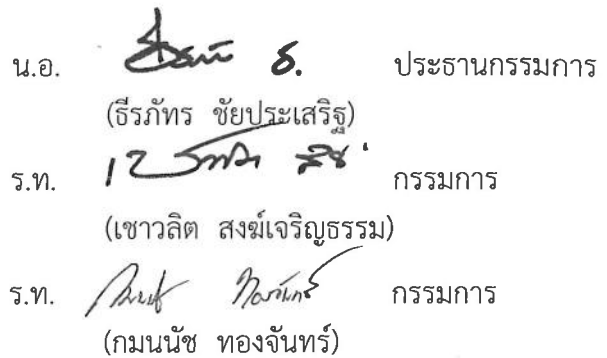 น.อ. ประธานกรรมการ
(ธีรภัทร ชัยประเสริฐ)
ร.ท. กรรมการ
(เชาวลิต สงฆ์เจริญธรรม)
ร.ท. กรรมการ
(กมนนัช ทองจันทร์)